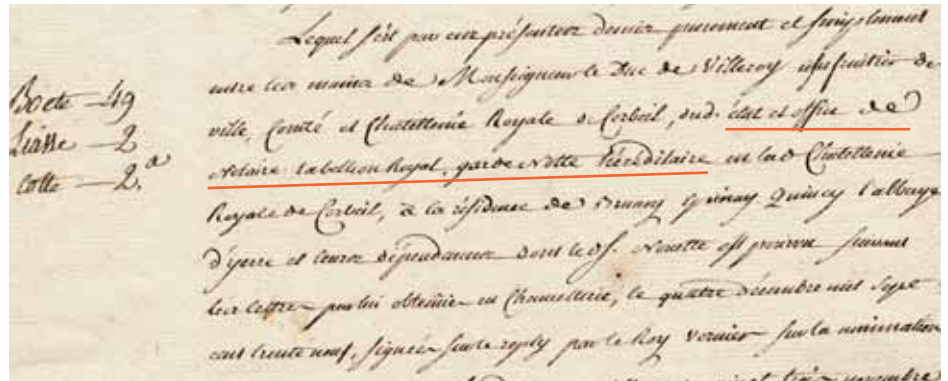 Lequel s'est par ces présentes demis purement et simplement
entre les mains de Monseigneur le Duc de Villeroy usufruitier de
Boete - 49
ville, Comté et Chatellenie Royale de Corbeil, dud. état et office de
Liasse - 2
Notaire tabellion Royal, garde Notte héréditaire en lad Chatellenie
Cotte - 2.e
Royale de Corbeil, à la résidence de Brunoy Epinay Quincy l'abbaye
d'yerre et leurs dépendances dont led. S. Nouette est pourvu suivant
les lettres par lui obtenües en Chancellerie, le quatre décembre mil sept
cent trente neuf, signées sur le reply par le Roy Vernier sur la nomination
vingt trois novembre